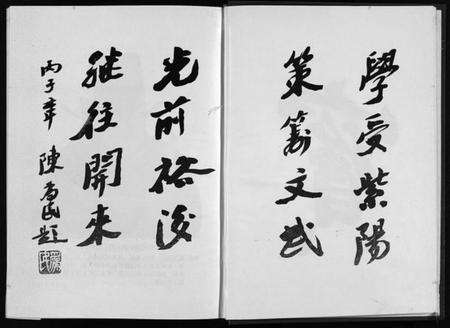 學受紫陽
策籌文武
光前裕後
继往開来
丙子年 陳 民題